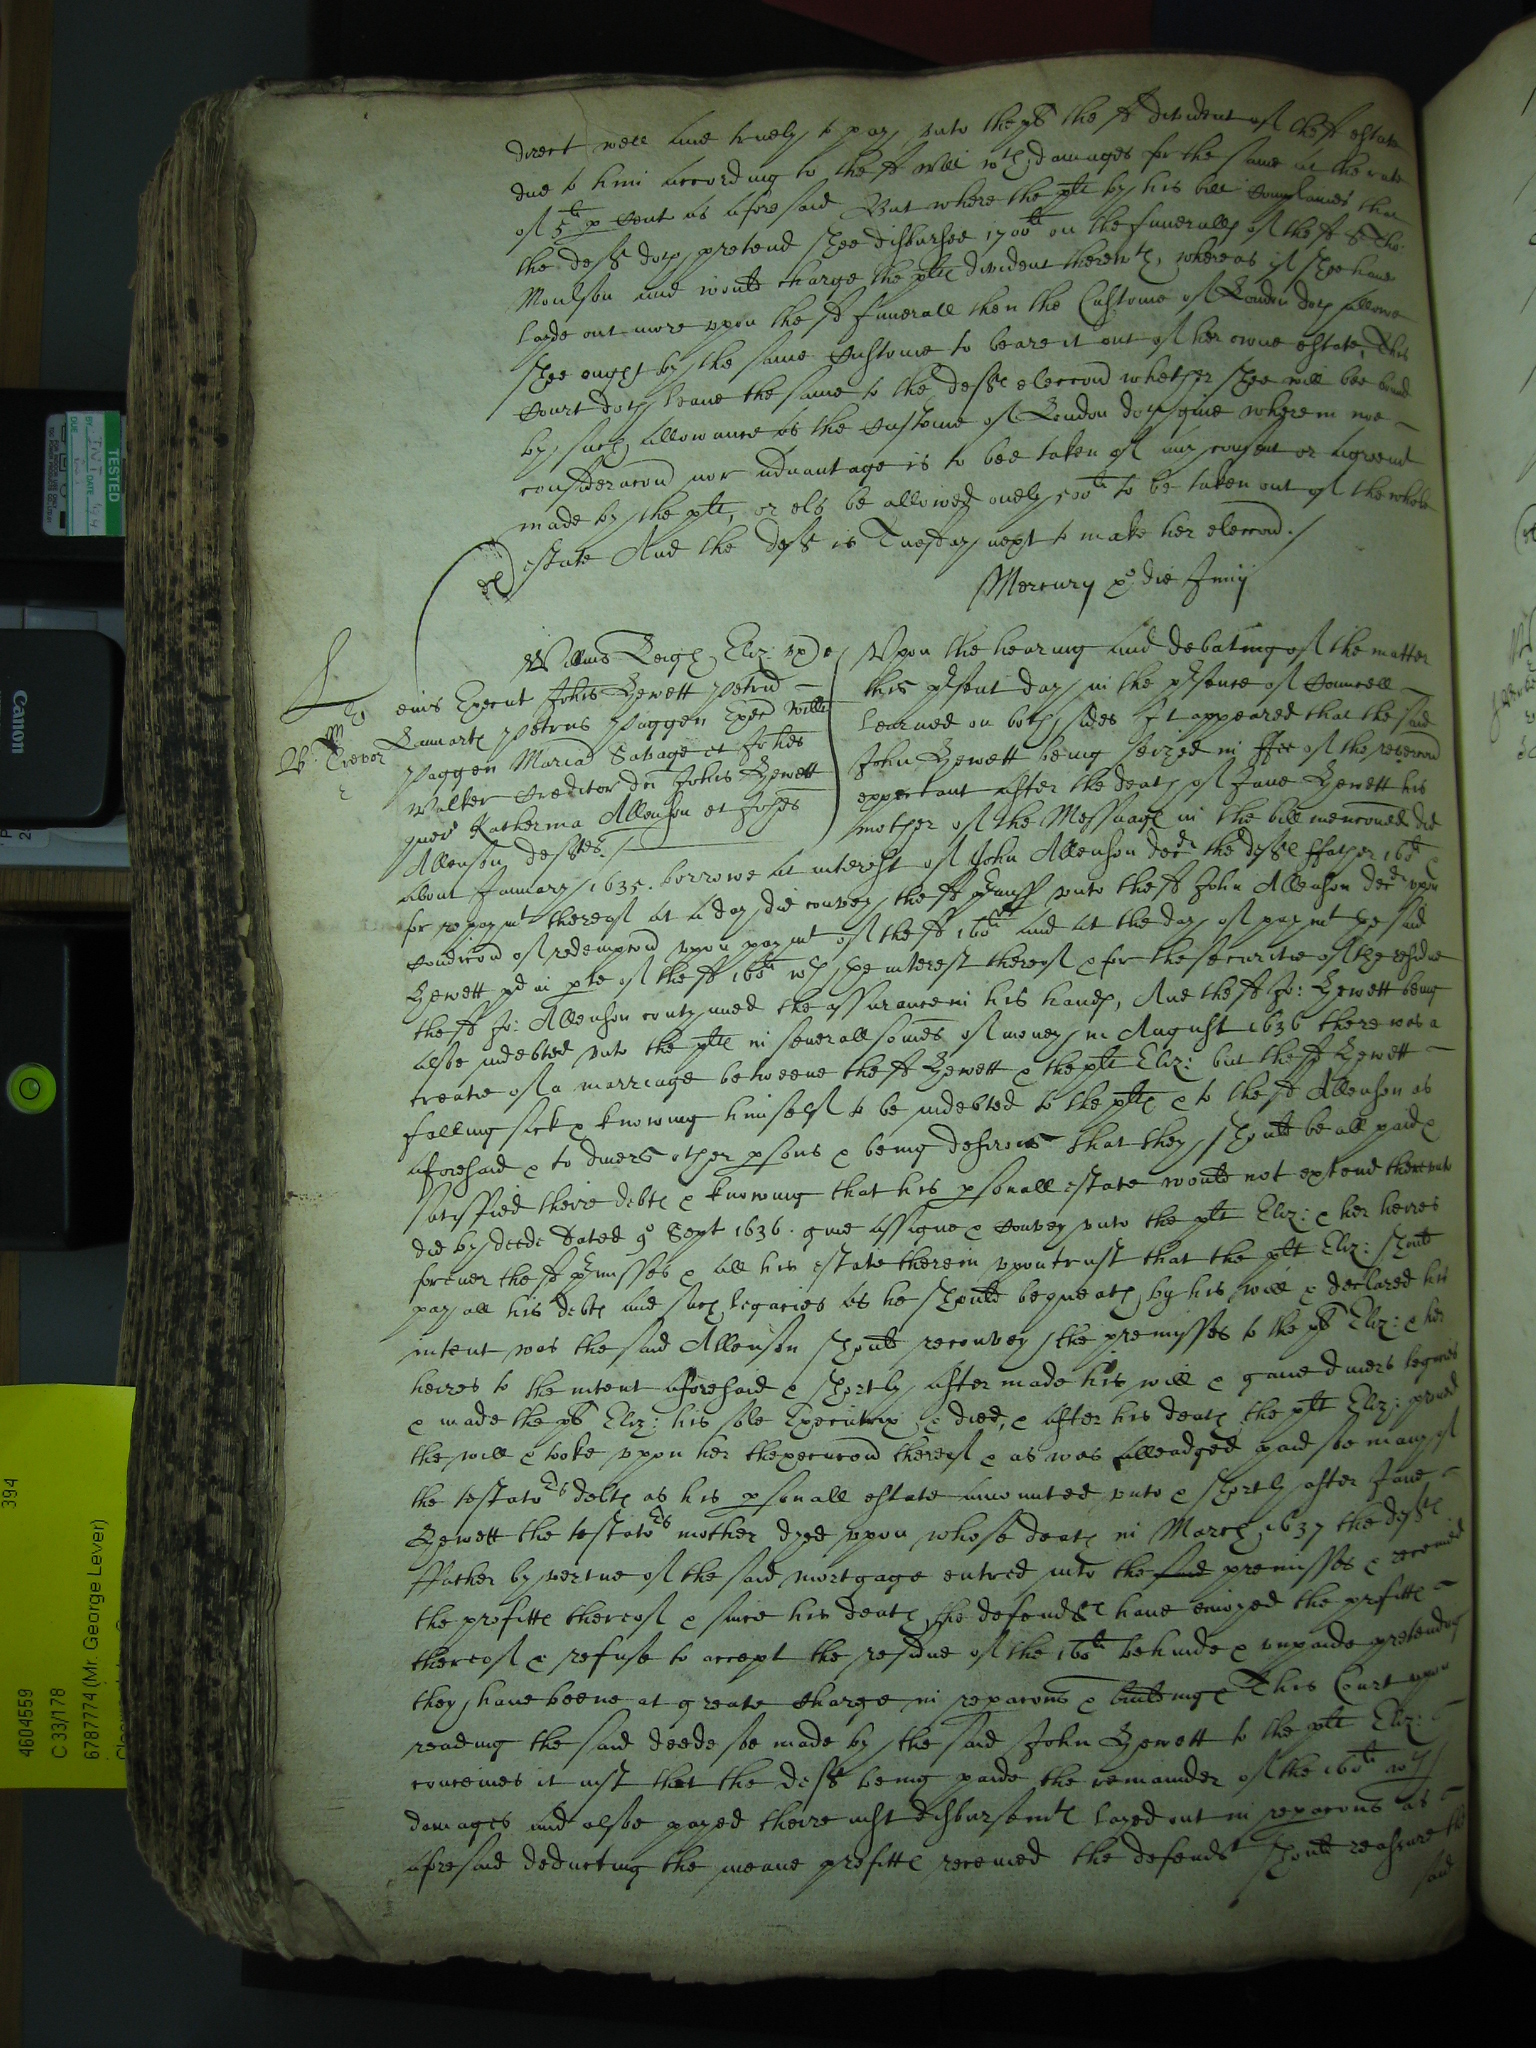 direct well and truely to pay unto the pl the sd divident of the sd estate
due to him according to the sd will wth damages for the same at the rate
of 5li p Cent as aforesaid But where the plt by his bill Complaines that
the deft doth pretend shee disbursed 1700li on the funerall of the sd Sr Tho:
Moulson and would charge the plts divident therewth, whereas if shee have
layde out more upon the sd funerall then the Custome of London doth allowe
shee ought by the same Custome to beare it out of her owne estate, This
Court doth leave the same to the defts eleccon whether shee will bee bound
by such allowance as the Custome of London doth give wherein noe
consideracon nor advantage is to bee taken of any consent or agreemt
made by the plt, or els be allowed onely 500li to be taken out of the whole
estate And the deft is Tuesday next to make her eleccon./
Mercurij p° die Junij
Willms Leigh Eliz: ux
eius Execut Johis Hewett Petrus
Lamarth Petrus Paggen Exec Willi
Paggen Maria Savage et Johes
Walker Creditor dci Johis Hewett
quer Katherina Allenson et Johes
Allenson deftes./
Mr Trevor
Upon the hearing and debating of the matter
this psent day in the psence of Councell
learned on both sides It appeared that the said
John Hewett being seized in ffee of the revercon
expectant after the death of Jane Hewett his
mother of the Messuage in the bill menconed did
about January 1635. borrowe at interest of John Allenson decd the defts ffather 160li &
for repaymt thereof at a day did convey the sd pmiss unto the sd John Allenson decd upon
Condicon of redempcon upon paymt of the sd 160li and at the day of paymt the said
Hewett pd in pte of the sd 160li wth the interest thereof & for the securitie of the residue
the sd Jo: Allenson contynued the assurance in his hands, And the sd Jo: Hewett being
alsoe indebted unto the plts in severall somes of money in August 1636 there was a
treatie of a marriage betweene the sd Hewett & the plt Eliz: but the sd Hewett
falling sick & knowing himself to be indebted to the plts & to the sd Allenson as
aforesaid & to divers other psons & being desirous that they should be all paid &
satisfied theire debts & knowing that his psonall estate would not extend thereunto
did by deede dated 9° Sept 1636. give assigne & convey unto the plt Eliz: & her heires
forever the sd pmisses & all his estate therein upon trust that the plt Eliz: should
pay all his debts and such legacies as he should bequeath by his will & declared his
intent was the said Allenson should reconvey the premisses to the pl Eliz: & her
heires to the intent aforesaid & shortly after made his will & gave divers legacies
& made the pl Eliz: his sole Executrix & died, & after his death the plt Eliz: proved
the will & tooke upon her thexecucon thereof & as was alleadged paid soe many of
the testators debts as his psonall estate amounted unto & shortly after Jane
Hewett the testators mother dyed upon whose death in March 1637 the defts
ffather by vertue of the said mortgage entred into the said premisses & received
the profitts thereof & since his death the defendts have enioyed the profitts
thereof & refuse to accept the residue of the 160li behinde & unpaide pretending
they have beene at greate Charge in reparons & buildings This Court upon
reading the said deede soe made by the said John Hewett to the plt Eliz:
conceives it iust that the defts being paide the remainder of the 160li wth
damages and alsoe payed theire iust disbursemts layed out in reparons as
aforesaid deducting the meane profitts received the defendts should reassure the
said
TESTED
INIT
DATE
DUE
Canon
394
4604559
C 33/178
6787774 (Mr. George Lever)